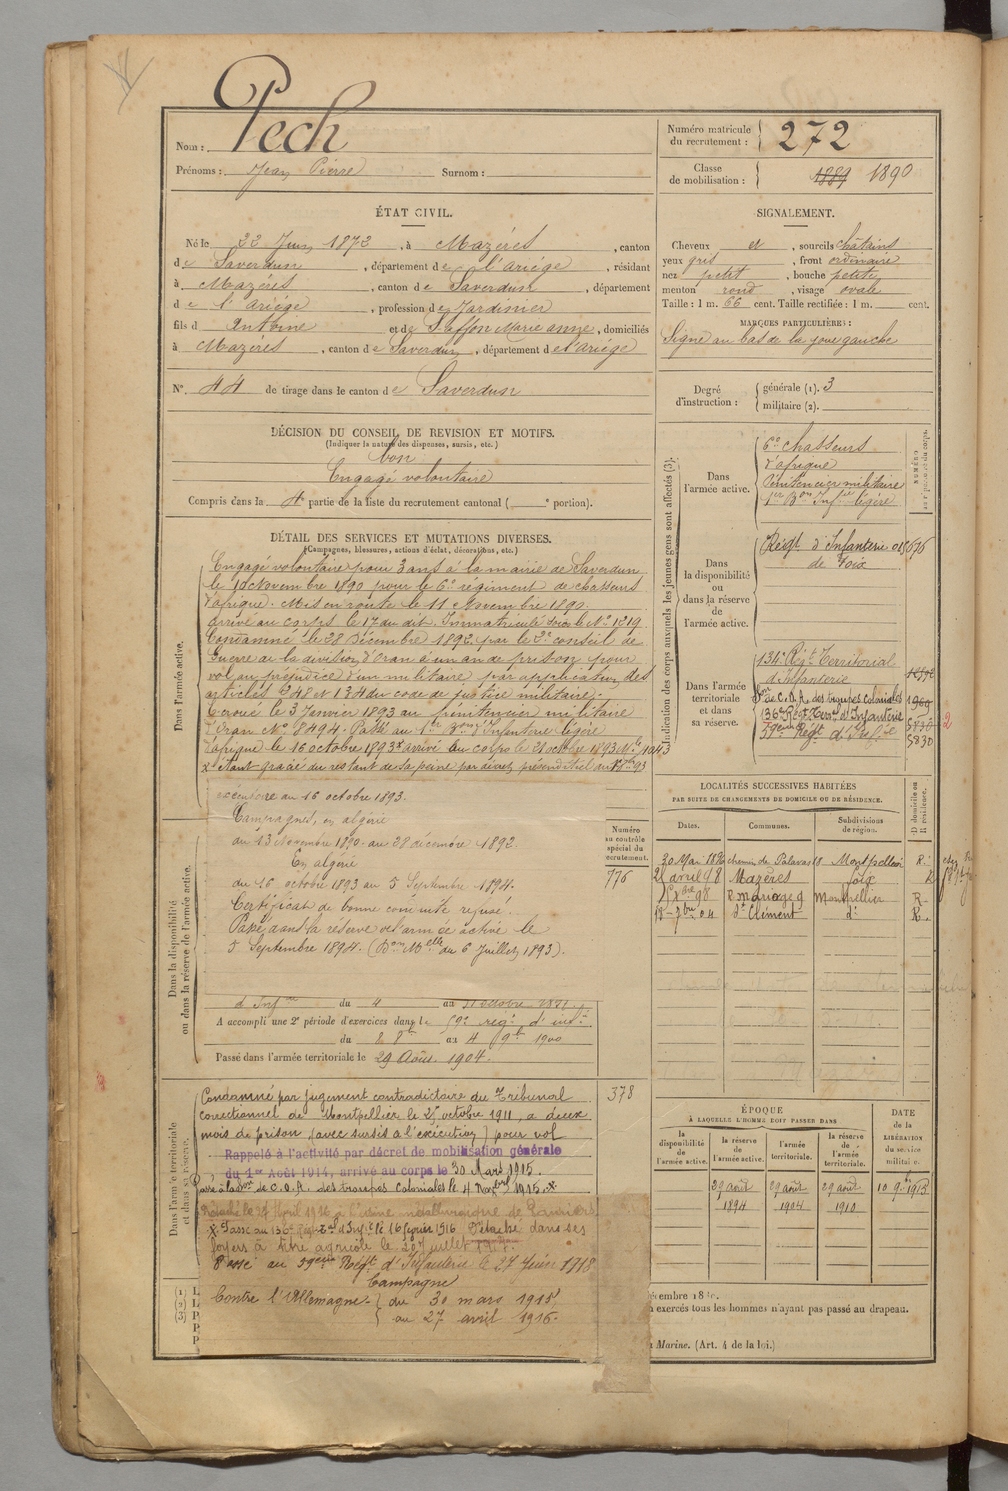 Nom : Pech
Prénoms : Jean Pierre Surnom :
Numéro matricule du recrutement : 272
Classe de mobilisation : 1889 1890
ÉTAT CIVIL.
Né le 22 Juin 1872, à Mazérés, canton
de Saverdun, département de l'Ariége, résidant
à Mazérés, canton de Saverdun, département
de l'Ariége, profession de Jardinier
fils d Antoine et de Saffon Marie anne, domiciliés
à Mazérés, canton de Saverdun, département de l'ariége
N° 44 de tirage dans le canton de Saverdun
SIGNALEMENT.
Cheveux et, sourcils châtains
yeux gris, front ordinaire
nez petit, bouche petite
menton rond, visage ovale
Taille : 1 m. 66 cent. Taille rectifiée : 1 m. cent.
MARQUES PARTICULIÈRES :
Signe au bas de la joue gauche
Degré d'instruction : générale (1). 3
militaire (2).
DÉCISION DU CONSEIL DE REVISION ET MOTIFS.
(Indiquer la nature des dispenses, sursis, etc.)
bon
Engagé volontaire
Compris dans la 4e partie de la liste du recrutement cantonal ( e portion).
DÉTAIL DES SERVICES ET MUTATIONS DIVERSES.
(Campagnes, blessures, actions d'éclat, décorations, etc.)
Dans l'armée active.
Engagé volontaire pour 3 ans à la mairie de Saverdun
le 10 Novembre 1890 pour le 6e régiment de chasseurs
d'afrique. Mis en route le 11 Novembre 1890
arrivé au corps le 17 du dit. Immatriculé sous le N° 1219.
Condamné le 28 Décembre 1892 par le 2e conseil de
Guerre de la division d'Oran à un an de prison pour
vol au préjudice d'un militaire par application des
articles 248 et 134 du code de justice militaire.
Ecroué le 3 Janvier 1893 au pénitencier militaire
d'Oran N° 8494. Passé au 1er Bon d'Infanterie légère
d'afrique le 16 octobre 1893 x arrivé au corps le 21 octobre 1893 Mle 1043
x Etant gracié du restant de sa peine par décret présidentiel du
exécutoire au 16 octobre 1893.
Campagnes, en algérie
du 13 Novembre 1890 au 28 décembre 1892.
En algérie
du 16 octobre 1893 au 5 Septembre 1894.
Certificat de bonne conduite refusé.
Passé dans la réserve de l'armée active le
5 Septembre 1894. (Don Melle du 6 Juillet 1893).
Dans la disponibilité
ou dans la réserve de l'armée active.
d'Infrie du 4 au
A accompli une 2e période d'exercices dans le 59e régt d'infie
du 8 8bre au 4 9bre 1900
Passé dans l'armée territoriale le 29 Août 1904.
Numéro au contrôle spécial du recrutement.
776
378
Dans l'armée territoriale
et dans sa réserve.
Condamné par jugement contradictoire du Tribunal
correctionnel de Montpellier le 25 octobre 1911, a deux
mois de prison, (avec sursis à l'exécution) pour vol
Rappelé à l'activité par décret de mobilisation générale
du 1er Août 1914, arrivé au corps le 30 Mars 1915.
Passé à la son de C.O.A. des troupes Coloniales le 4 Novbre 1915. x
Détaché le 27 Avril 1916 à l'usine métallurgique de Pamiers
x Passé au 136e Régt Tal d'Infie le 16 février 1916 Détaché dans ses
foyers à titre agricole le 20 juillet 1917.
Passé au 59ème Régt d'Infanterie le 27 Juin 1918
Campagne
Contre l'Allemagne { du 30 mars 1915
au 27 avril 1916.
Indication des corps auxquels les jeunes gens sont affectés (3).
Dans l'armée active.
6e chasseurs
d'afrique
Pénitencier militaire
1er Bon Infrie légère
Dans la disponibilité ou dans la réserve de l'armée active.
Régt d'Infanterie
de Foix
Dans l'armée territoriale et dans sa réserve.
134e Régt Territorial
d'Infanterie
Son de C.O.A. des troupes coloniales 1960
136e Régt Terral d'Infanterie 5830
59ème Régt d'Infie 5830
2
LOCALITÉS SUCCESSIVES HABITÉES
PAR SUITE DE CHANGEMENTS DE DOMICILE OU DE RÉSIDENCE.
Dates. Communes. Subdivisions de région. D domicile ou R résidence.
30 Mai 1896 chemin de Palavas 18 Montpellier R.
21 avril 98 Mazères Foix R
98 Montpellier R.
04 St Clément do R.
ÉPOQUE
À LAQUELLE L'HOMME DOIT PASSER DANS
la disponibilité de l'armée active. la réserve de l'armée active. l'armée territoriale. la réserve de l'armée territoriale.
DATE de la LIBÉRATION du service militaire.
29 août 1894 29 août 1904 29 août 1910 10 9bre 1915
(1) L
(2) L
(3) P
P
P
exercés tous les hommes n'ayant pas passé au drapeau.
Marine. (Art. 4 de la loi.)